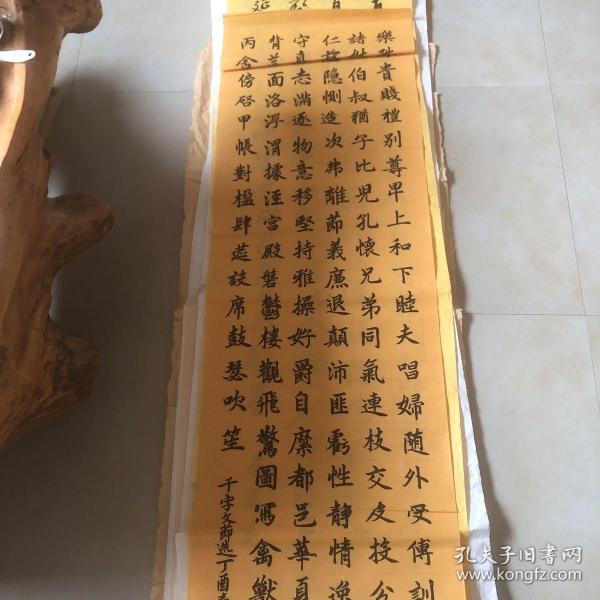 樂殊貴賤禮別尊卑上和下睦夫唱婦隨外受傅訓
諸姑伯叔猶子比兒孔懷兄弟同氣連枝交友投分
仁慈隐惻造次弗離節義廉退顛沛匪虧性静情逸
守真志滿逐物意移堅持雅操好爵自縻都邑華夏
背芒面洛浮渭據涇宮殿磐鬱樓觀飛驚圖寫禽獸
丙舍傍啓甲帳對楹肆筵設席鼓瑟吹笙
千字文節选丁酉
孔夫子旧书网
www.kongfz.com